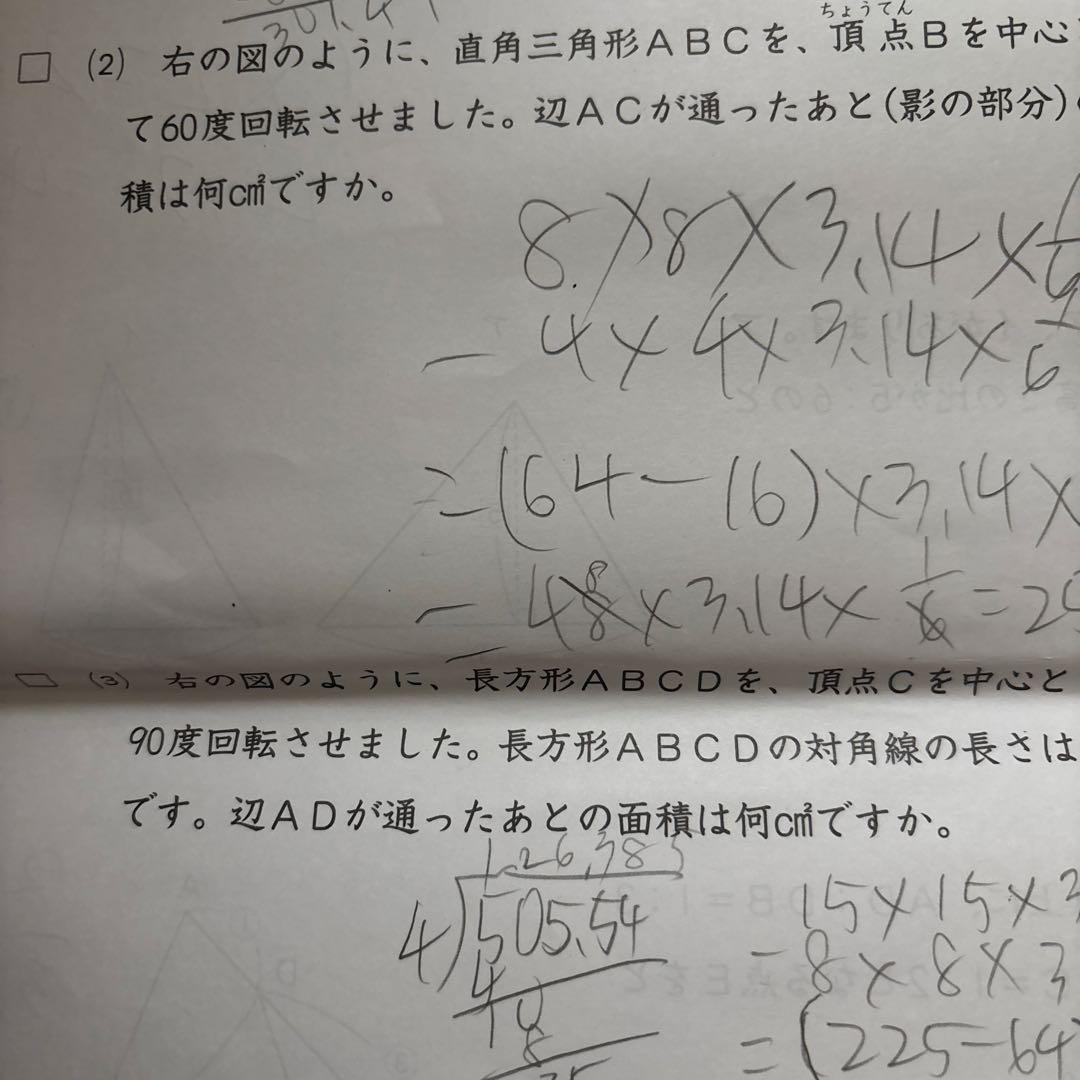 301.4
ちょうてん
□ (2) 右の図のように、直角三角形ABCを、頂点Bを中心
て60度回転させました。辺ACが通ったあと(影の部分)
積は何cm²ですか。
8×8×3.14×
- 4×4×3.14×1/6
=(64-16)×3.14×
= 48×3.14×1/6=2
8
□ (3) 右の図のように、長方形ABCDを、頂点Cを中心と
90度回転させました。長方形ABCDの対角線の長さは
です。辺ADが通ったあとの面積は何cm²ですか。
126.385
4)505.54
4
10
8
15×15×3
-8×8×3
=(225-64)